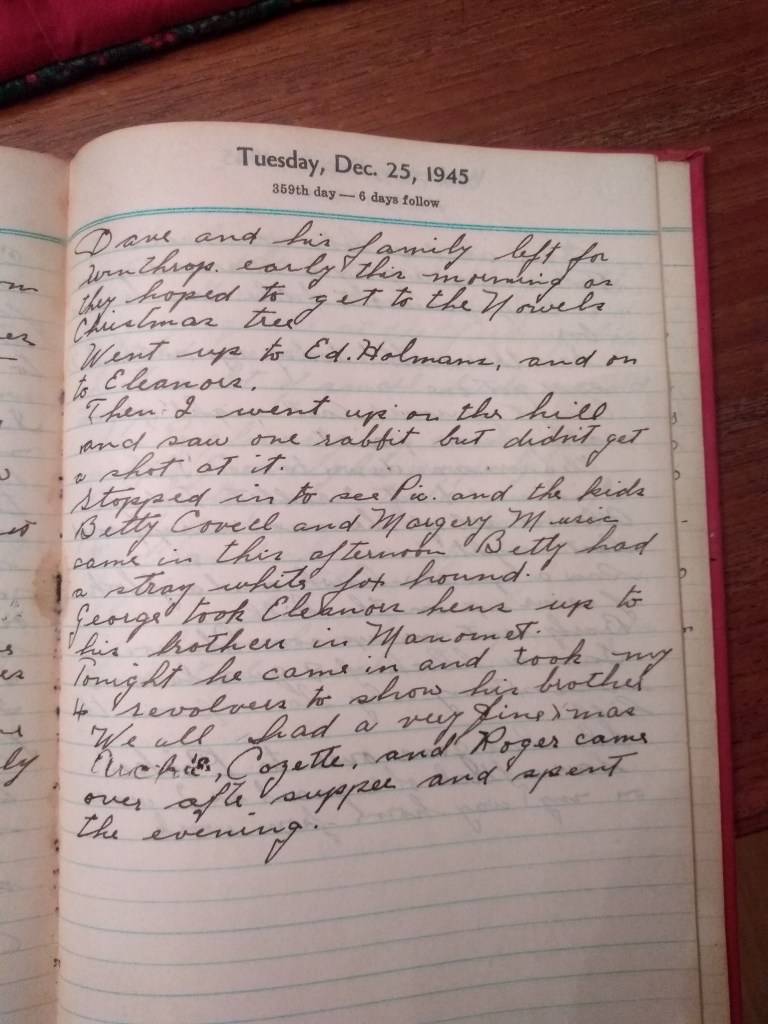 Tuesday, Dec. 25, 1945
359th day — 6 days follow
Dave and his family left for
Winthrop. early this morning as
they hoped to get to the Nowels
Christmas tree
Went up to Ed. Holmans, and on
to Eleanors.
Then I went up on the hill
and saw one rabbit but didn't get
a shot at it.
Stopped in to see Pic. and the kids
Betty Covell and Margery Music
came in this afternoon Betty had
a stray white fox hound.
George took Eleanors hens up to
his brothers in Manomet.
Tonight he came in and took my
4 revolvers to show his brother
We all had a very fine xmas
Archie's, Cozette, and Roger came
over afte supper and spent
the evening.